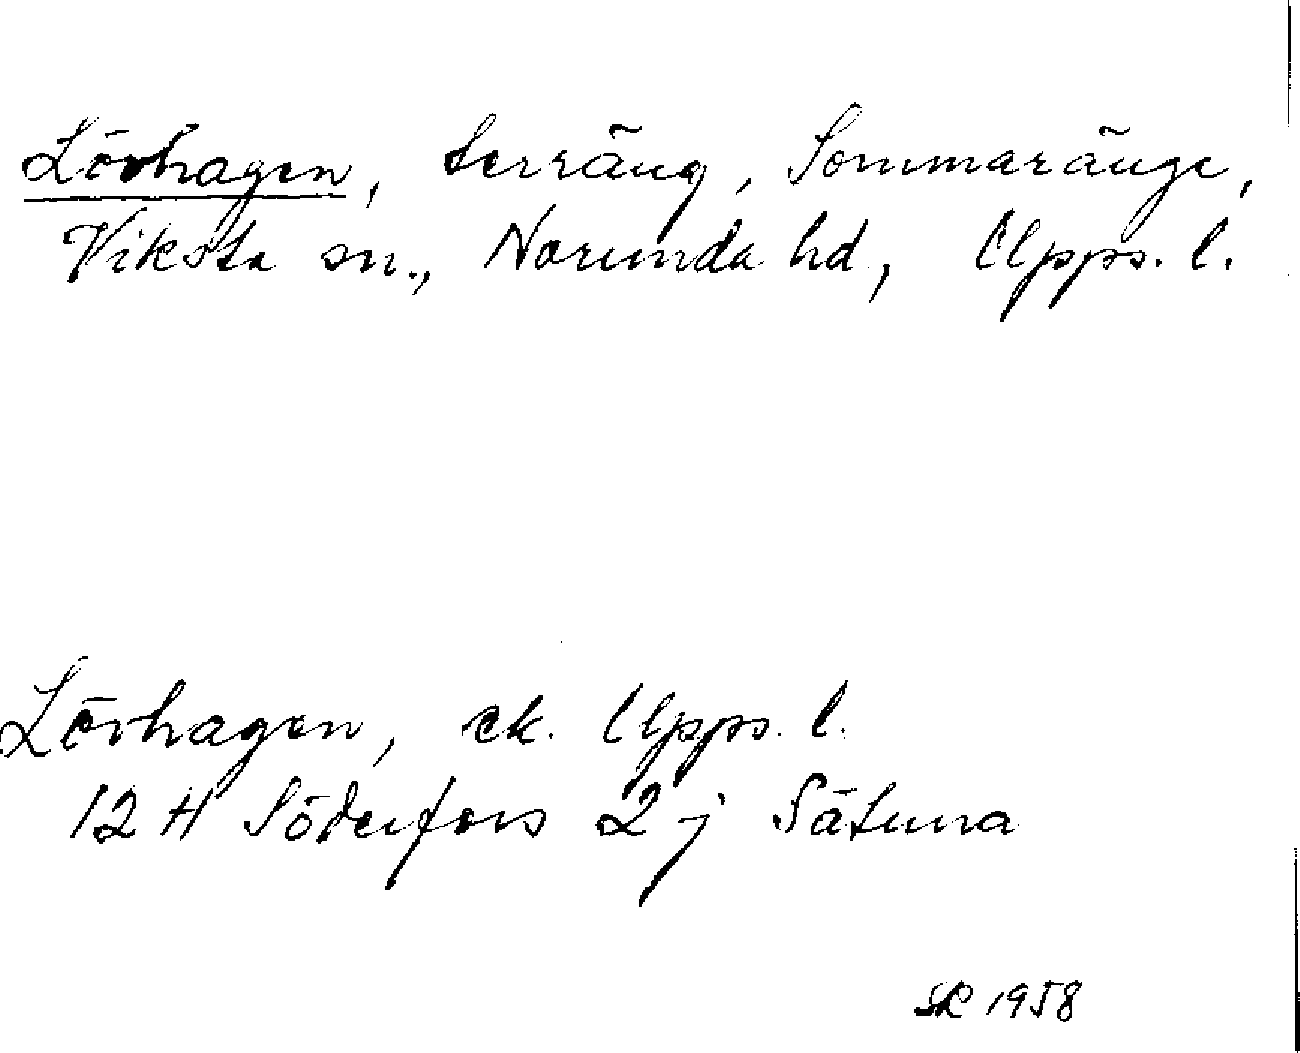 Lövhagen, terräng, Sommaränge,
Viksta sn., Norunda hd, Upps. l.
Lövhagen, ek. Upps. l.
12 H Söderfors 2 j Sätuna
SR 1958